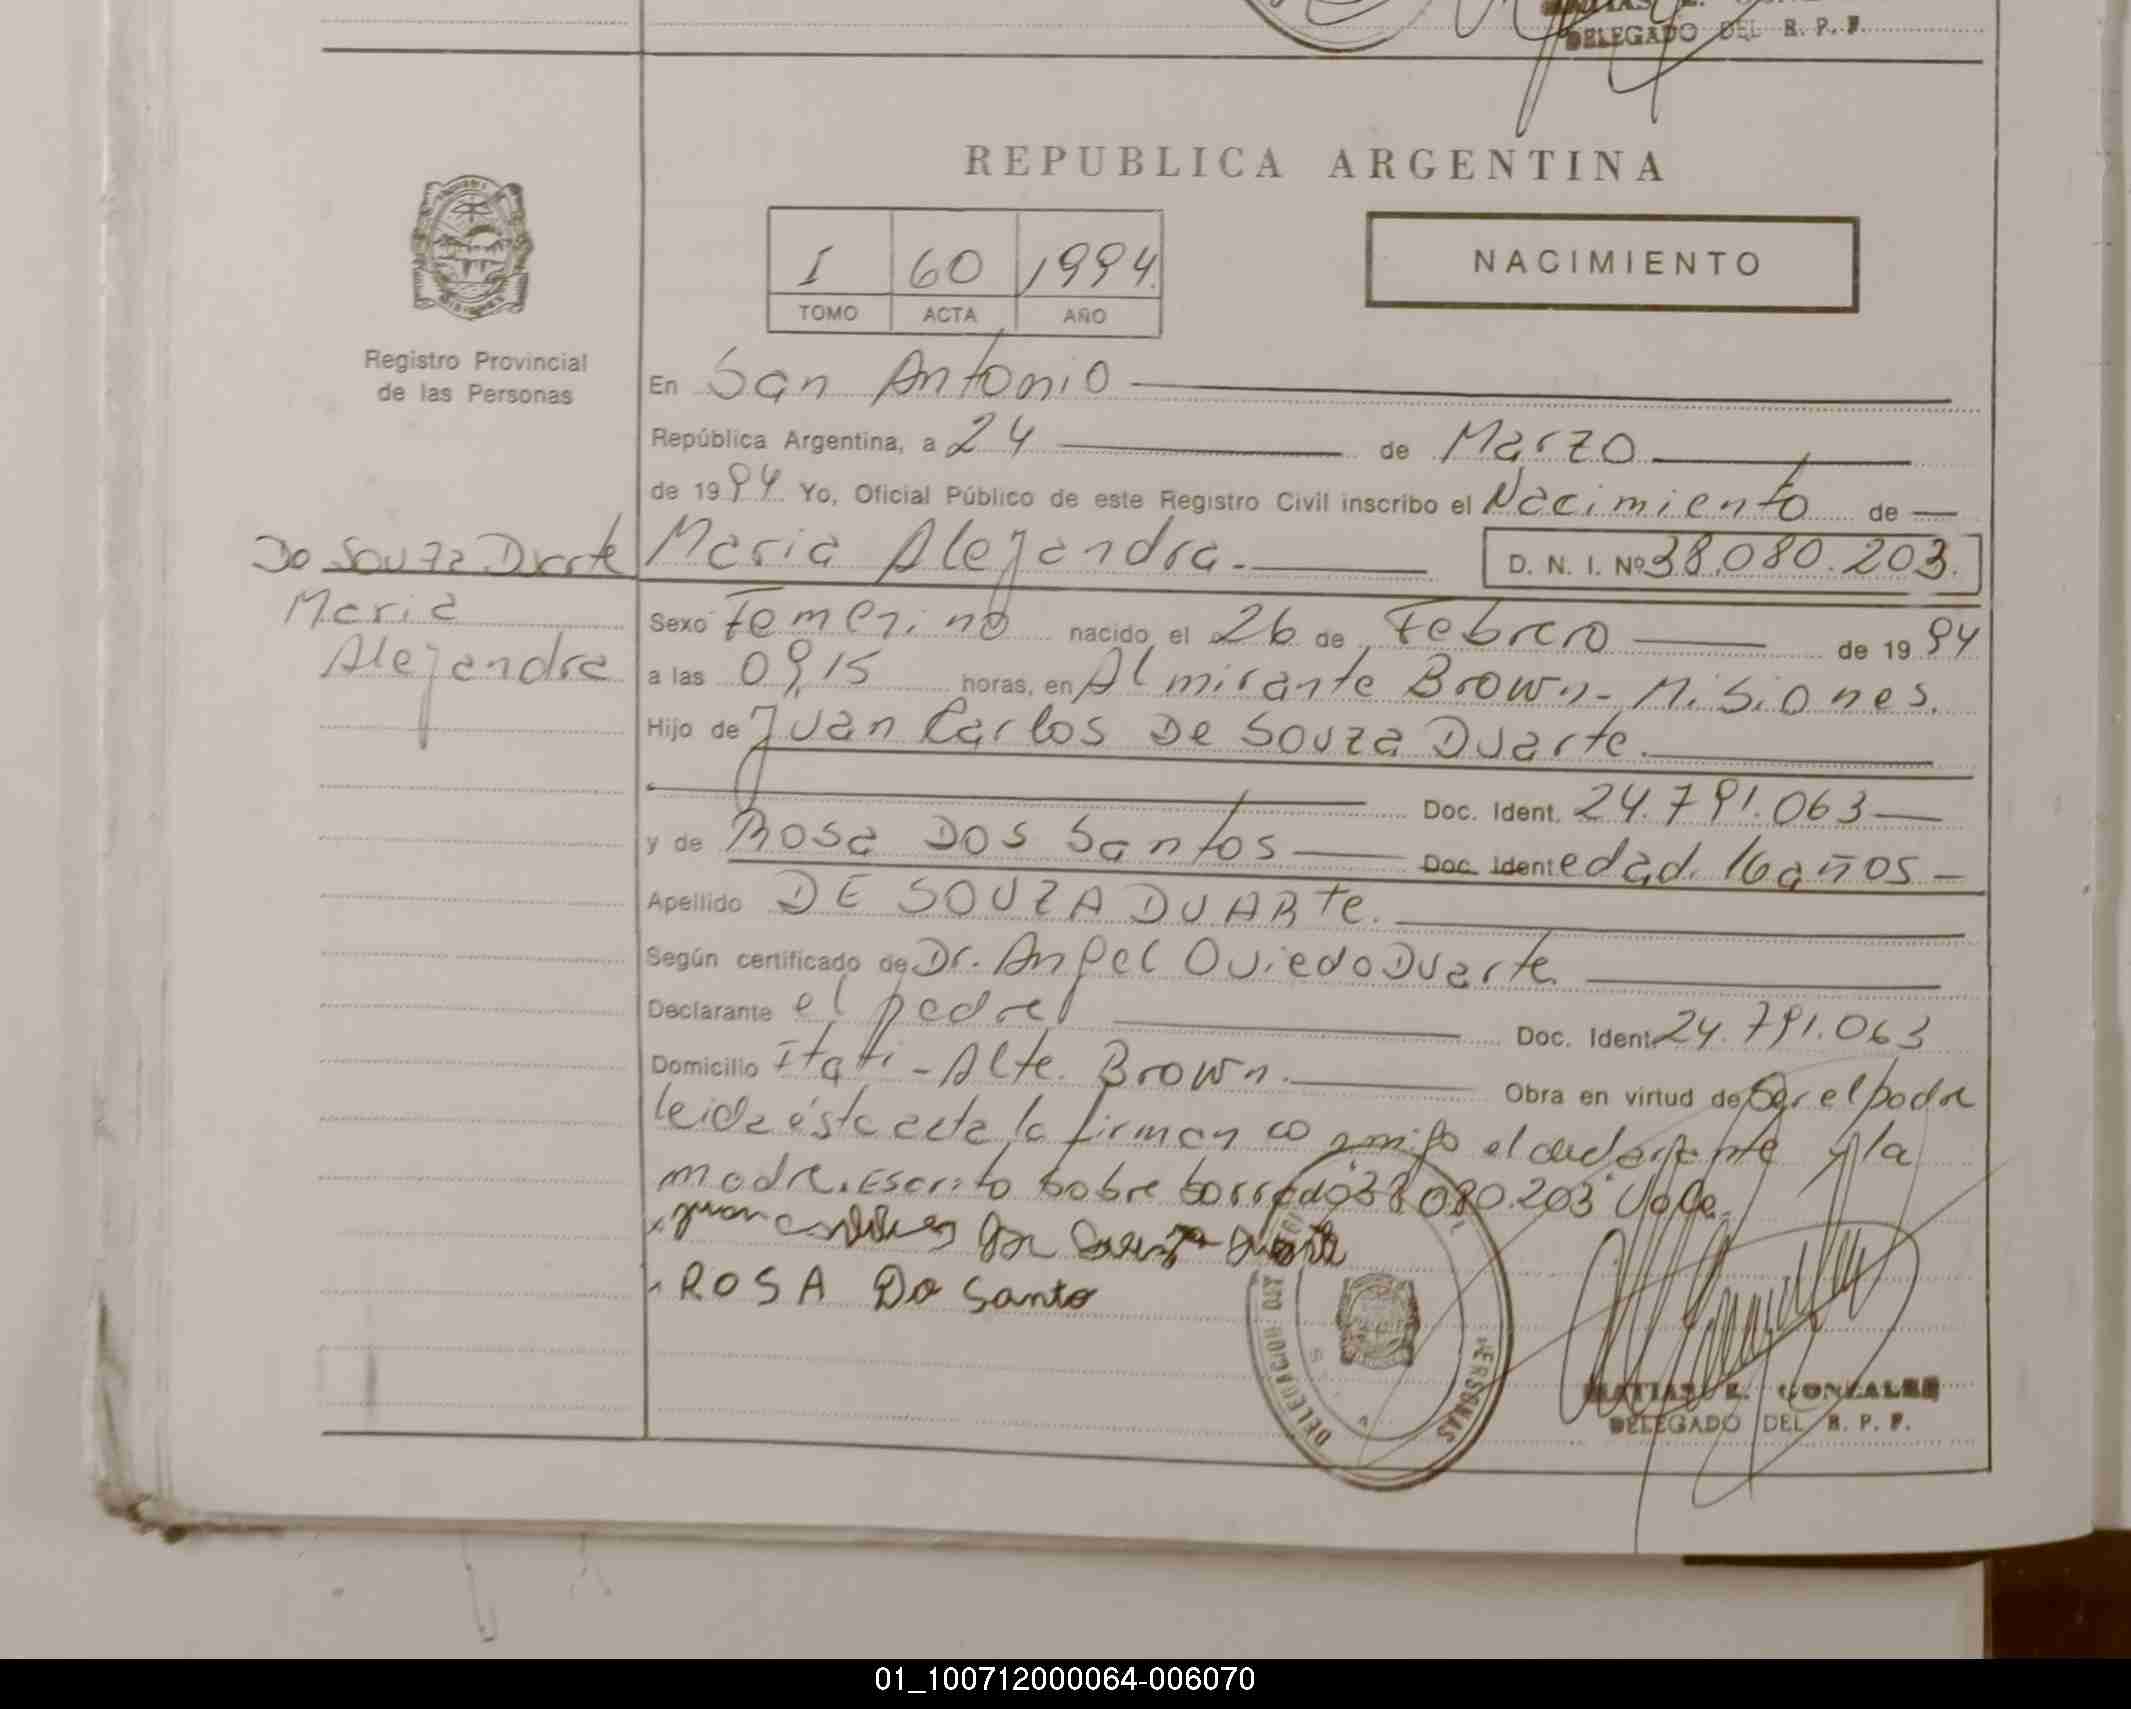 DELEGADO DEL R. P. P.
REPUBLICA ARGENTINA
I 60 1994
TOMO ACTA AÑO
NACIMIENTO
Registro Provincial
de las Personas
En San Antonio
República Argentina, a 24 de Marzo
de 1994 Yo, Oficial Público de este Registro Civil inscribo el Nacimiento de
Do Souza Duarte
Maria
Alejandra
Maria Alejandra. D. N. I. Nº 38.080.203.
Sexo Femenino nacido el 26 de Febrero de 1994
a las 09,15 horas, en Almirante Brown - Misiones.
Hijo de Juan Carlos De Souza Duarte.
Doc. Ident. 24.791.063
y de Rosa Dos Santos Doc. Ident edad. 16 años
Apellido DE SOUZA DUARte.
Según certificado de Dr. Angel Oviedo Duarte
Declarante el padre Doc. Ident. 24.791.063
Domicilio Itati - Alte. Brown. Obra en virtud de Ser el padre
leida ésta acta la firman conmigo el y la
madre. Escrito sobre borrado "38.080.203" Vale.
x Juan De Souza Duarte
x ROSA Do Santo
DELEGACION PERSONAS
MATIAS E. GONZALEZ
DELEGADO DEL R. P. P.
01_100712000064-006070